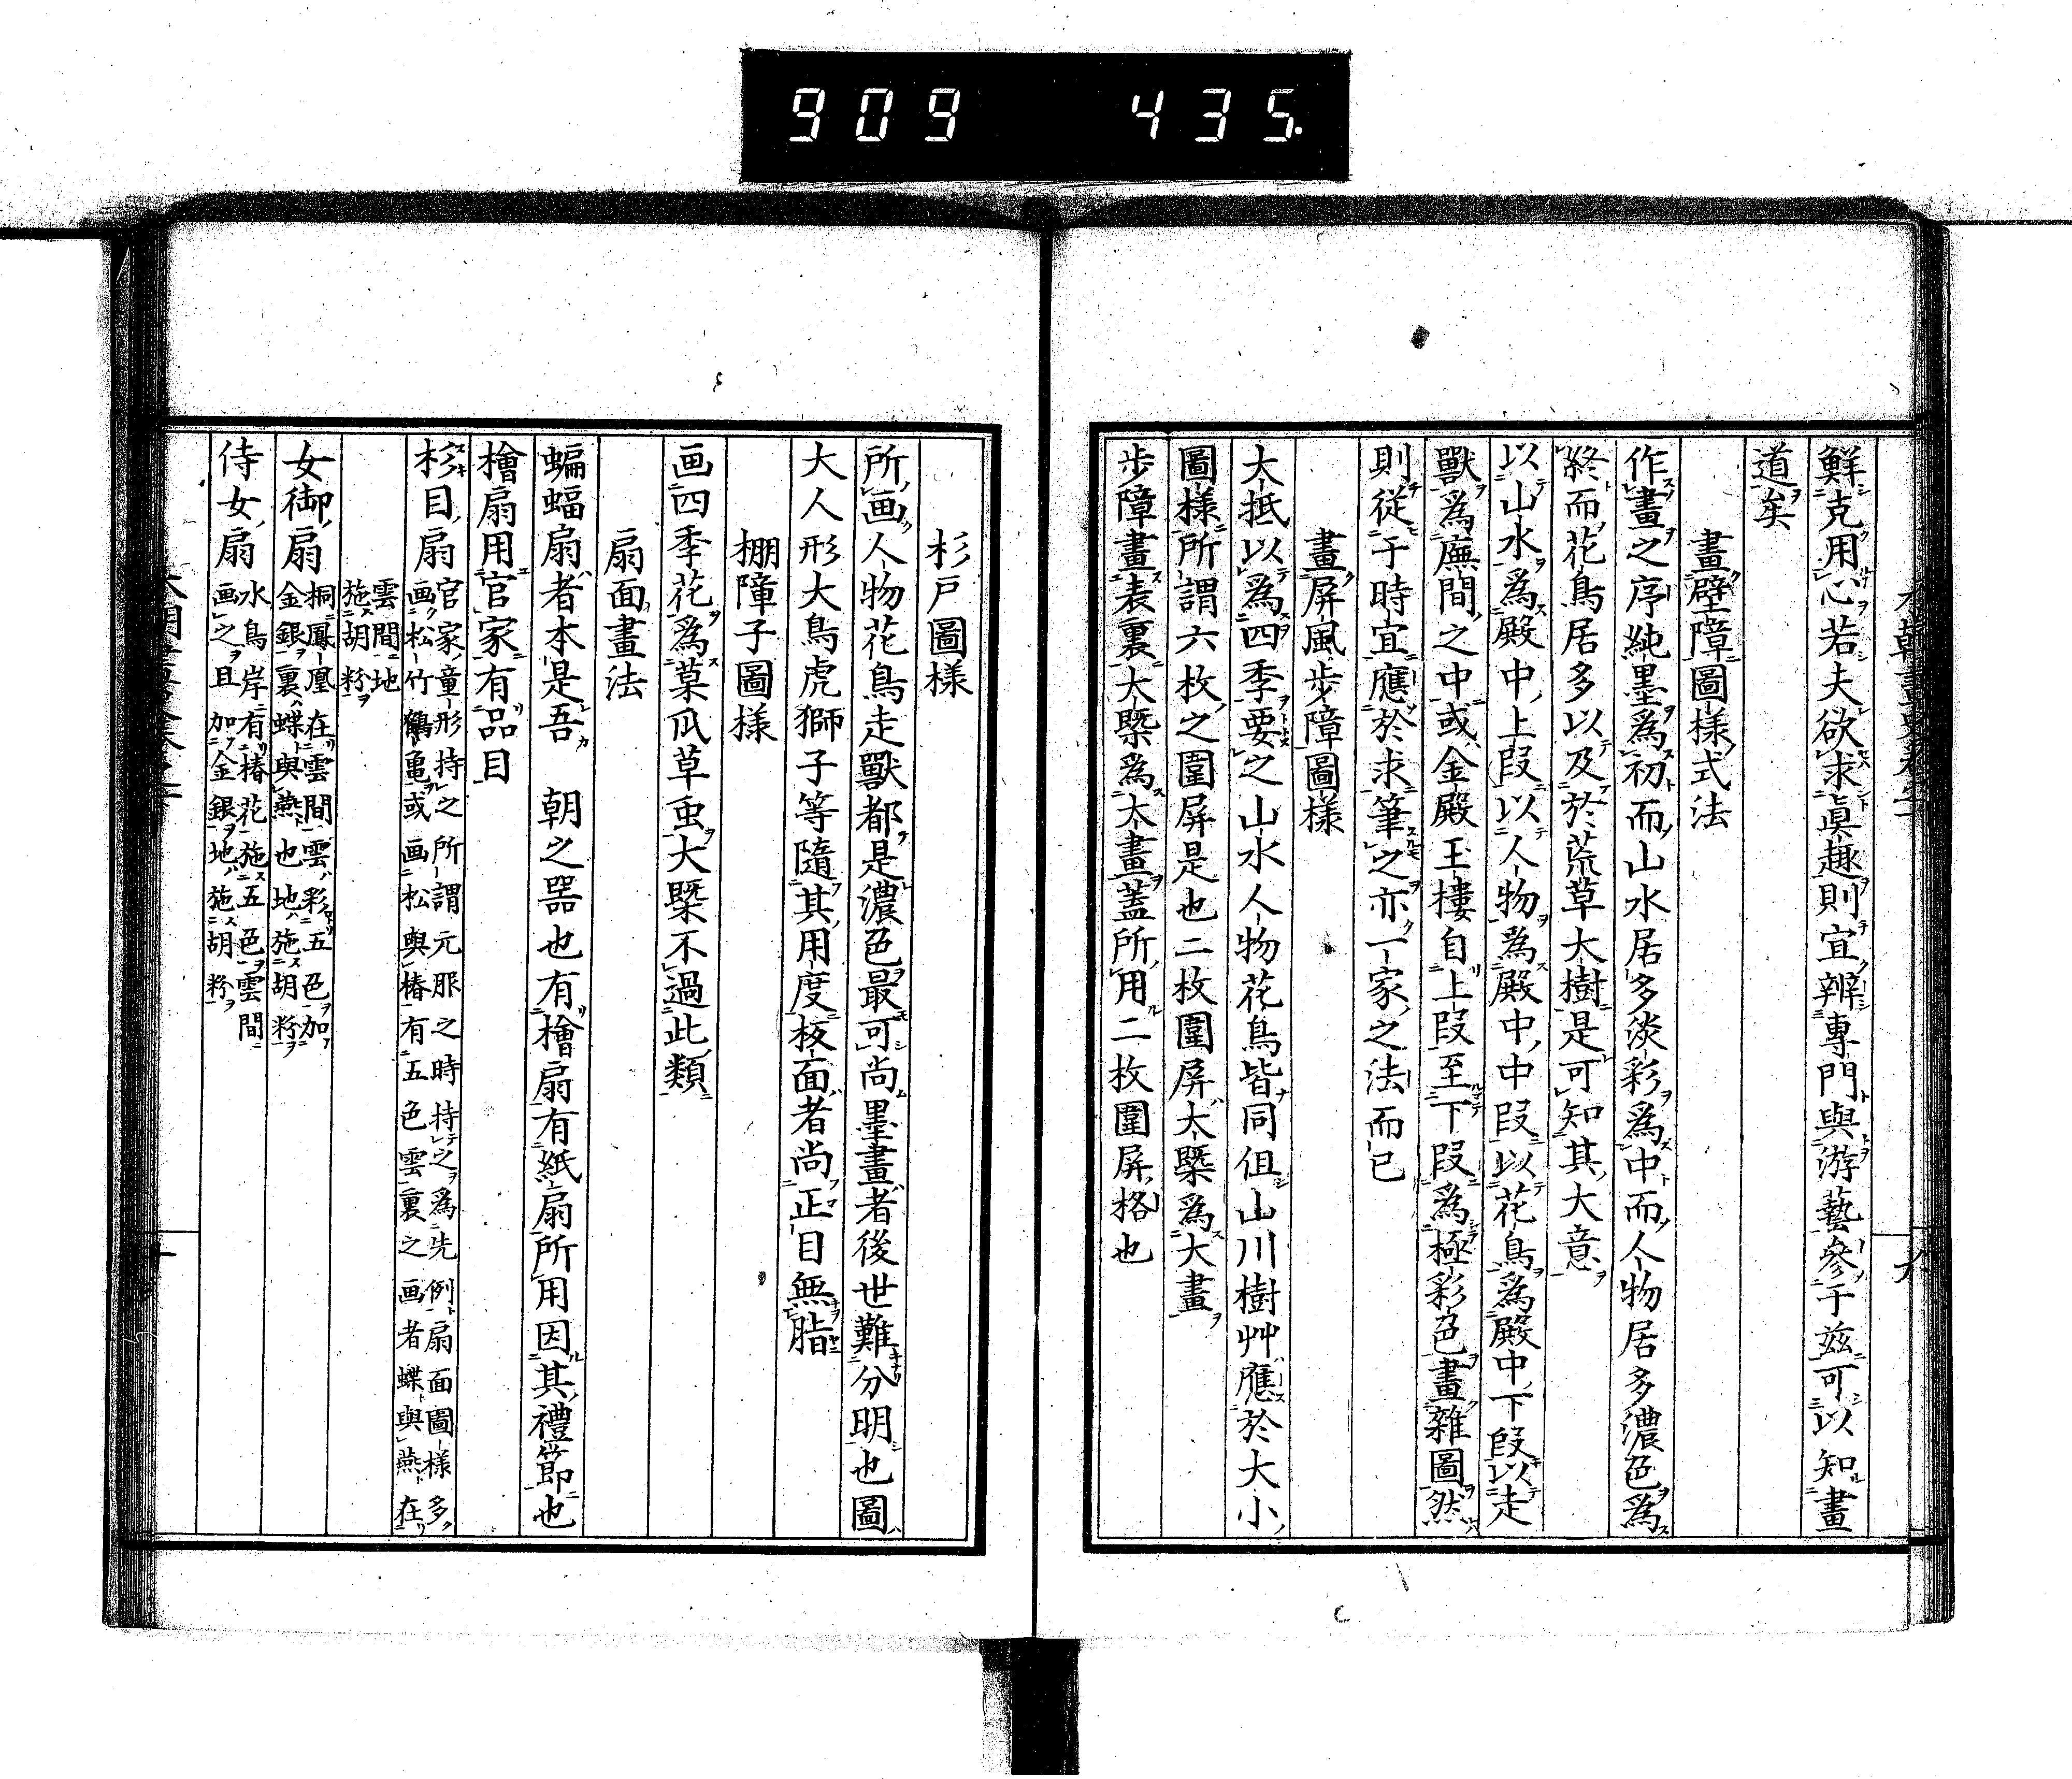 909 435.
鮮克用心若夫欲求真趣則宜辨專門與游藝參于茲可以知畫
道矣
畫壁障圖樣式法
作畫之序純墨為初而山水居多淡彩為中而人物居多濃色為
終而花鳥居多以及於荒草大樹是可知其大意
以山水為殿中上段以人物為殿中中段以花鳥為殿中下段以走
獸為廡間之中或金殿玉樓自上段至下段為極彩色畫雜圖然
則從于時宜應於求筆之亦一家之法而已
畫屏風步障圖樣
大抵以為四季要之山水人物花鳥皆同但山川樹艸應於大小
圖樣所謂六枚之圍屏是也二枚圍屏大槩為大畫
步障畫表裏大槩為大畫蓋所用二枚圍屏格也
杉戸圖樣
所画人物花鳥走獸都是濃色最可尚墨畫者後世難分明也圖
大人形大鳥虎獅子等隨其用度板面者尚正目無脂
棚障子圖樣
画四季花為菓瓜草虫大槩不過此類
扇面畫法
蝙蝠扇者本是吾 朝之器也有檜扇有紙扇所用因其禮節也
檜扇用官家有品目
杉目扇 官家童形持之所謂元服之時持之為先例扇面圖樣多
画松竹鶴亀或画松與椿有五色雲裏之画者蝶與燕在
雲間地
施胡粉
女御扇 桐鳳凰在雲間雲彩五色加
金銀裏蝶與燕也地施胡粉
侍女扇 水鳥岸有椿花施五色雲間
画之且加金銀地施胡粉